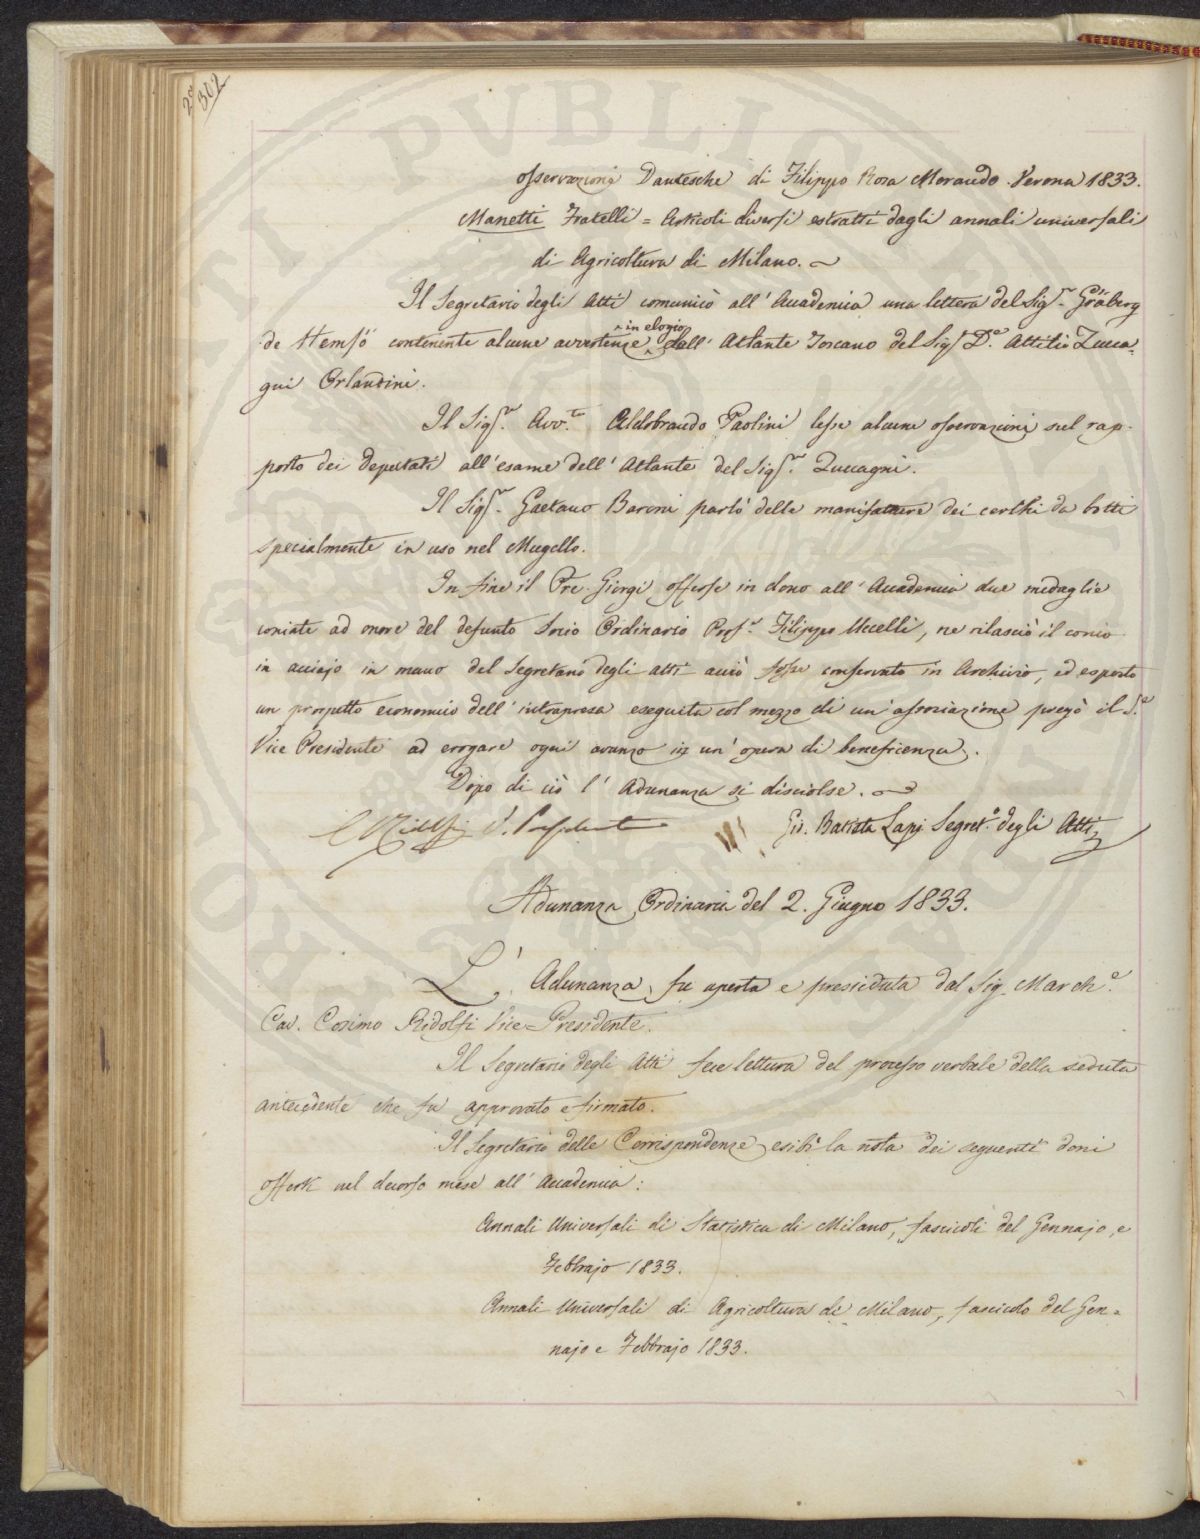 302
osservazioni Dantesche di Filippo Rosa Morando. Verona 1833.
Manetti Fratelli = Articoli diversi estratti dagli annali universali
di Agricoltura di Milano.
Il Segretario degli Atti comunicò all'Accademia una lettera del Sigr. Gräberg
de Hemsö contenente alcune avvertenze in elogio dell'Atlante Toscano del Sigr Do. Attilio Zucca=
gni Orlandini.
Il Sigr. Avvto. Aldobrando Paolini lesse alcune osservazioni sul rap-
porto dei Deputati all'esame dell'Atlante del Sigr. Zuccagni.
Il Sigr. Gaetano Baroni parlò delle manifatture dei cerchi da botti
specialmente in uso nel Mugello.
In fine il Pre. Giorgi offerse in dono all'Accademia due medaglie
coniate ad onore del defunto Socio Ordinario Profr. Filippo Uccelli, ne rilasciò il conio
in acciajo in mano del Segretario degli atti acciò fosse conservato in Archivio, ed esposto
un prospetto economico dell'intrapresa eseguita col mezzo di un'associazione pregò il S.e
Vice Presidente ad erogare ogni avanzo in un'opera di beneficienza.
Dopo di ciò l'Adunanza si disciolse.
C Ridolfi V. Presidente
Gio. Batista Lapi Segreto. degli Atti
Adunanza Ordinaria del 2. Giugno 1833.
L'Adunanza fu aperta e presieduta dal Sig. Marche.
Cav. Cosimo Ridolfi Vice=Presidente.
Il Segretario degli Atti fece lettura del processo verbale della seduta
antecedente che fu approvato e firmato.
Il Segretario delle Corrispondenze esibì la nota dei seguenti doni
offerti nel decorso mese all'Accademia:
Annali Universali di Statistica di Milano, fascicoli del Gennajo, e
Febbrajo 1833.
Annali Universali di Agricoltura di Milano, fascicolo del Gen=
najo e Febbrajo 1833.